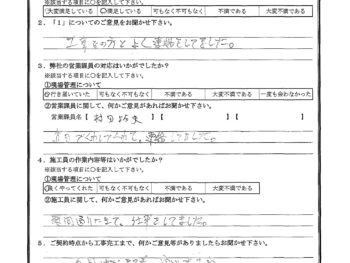 ※該当する項目に○を記入して下さい。
大変満足している ○満足している 可もなく不可もなく 不満である 大変不満である
2．「1」についてのご意見をお聞かせ下さい。
工事の方とよく連絡をしてました。
3．弊社の営業課員の対応はいかがでしたか？
※該当する項目に○を記入して下さい。
①現場管理について
○行き届いていた 可もなく不可もなく 不満である 大変不満である 一度も会わなかった
②営業課員に関して、何かご意見があればお聞かせ下さい。
営業課員名【 】【 】【 】
連絡してました。
4．施工員の作業内容等はいかがでしたか？
①現場管理について
良くやってくれた 可もなく不可もなく 不満である 大変不満である
②施工員に関して、何かご意見があればお聞かせ下さい。
時間通りに 仕事をしてました。
5．ご契約時点から工事完工まで、何かご意見等がありましたらお聞かせ下さい。